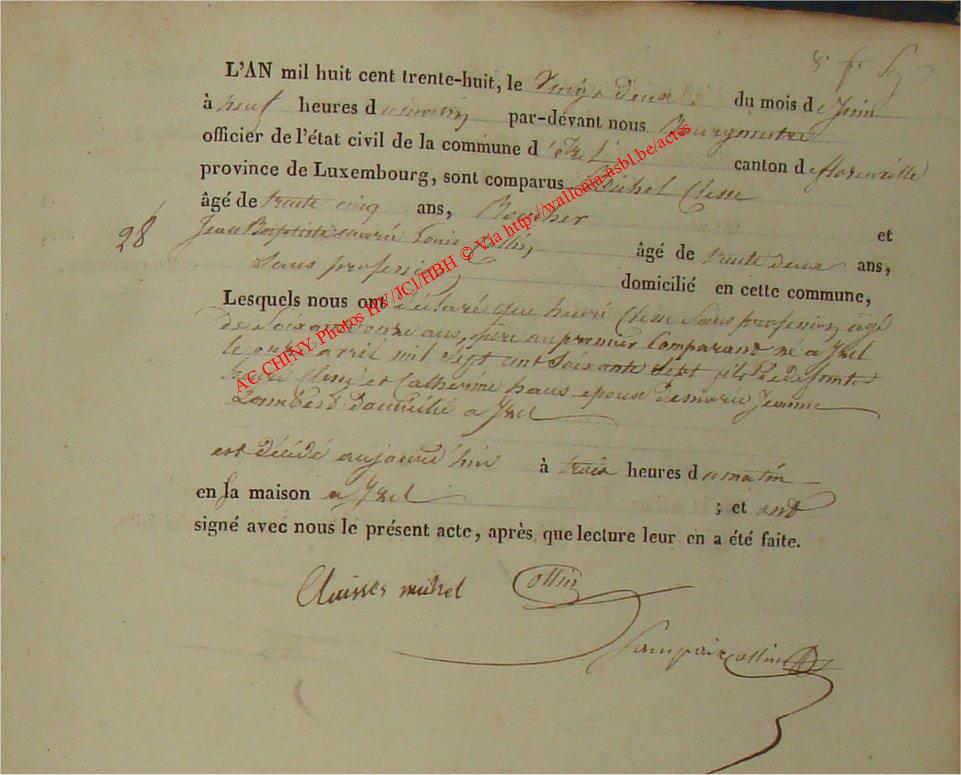 8. f. h
L'AN mil huit cent trente-huit, le Vingt deux du mois de Juin
à neuf heures du matin par-devant nous Bourgmestre
officier de l'état civil de la commune d'Izel canton de florenville
province de Luxembourg, sont comparus Michel Clesse
âgé de trente cinq ans, Boucher et
28
Jean Baptiste marie Louis Collin, âgé de trente deux ans,
Sans profession domicilié en cette commune,
Lesquels nous ont déclaré que henri Clesse Sans profession, âgé
de Soixante onze ans, père au premier Comparant né a Izel
le onze avril mil Sept cent Soixante Sept fils de defunts
henri Clesse et Catherine haus, epoux de marie Jeanne
Lambert domicilié a Izel
est décédé aujourd'hui à trois heures du matin
en sa maison a Izel ; et ont
signé avec nous le présent acte, après que lecture leur en a été faite.
Claisses michel Collin
Lampir Collin
AC CHINY Photos HS//JCI/HBH © Via http://wallonia-asbl.be/actes